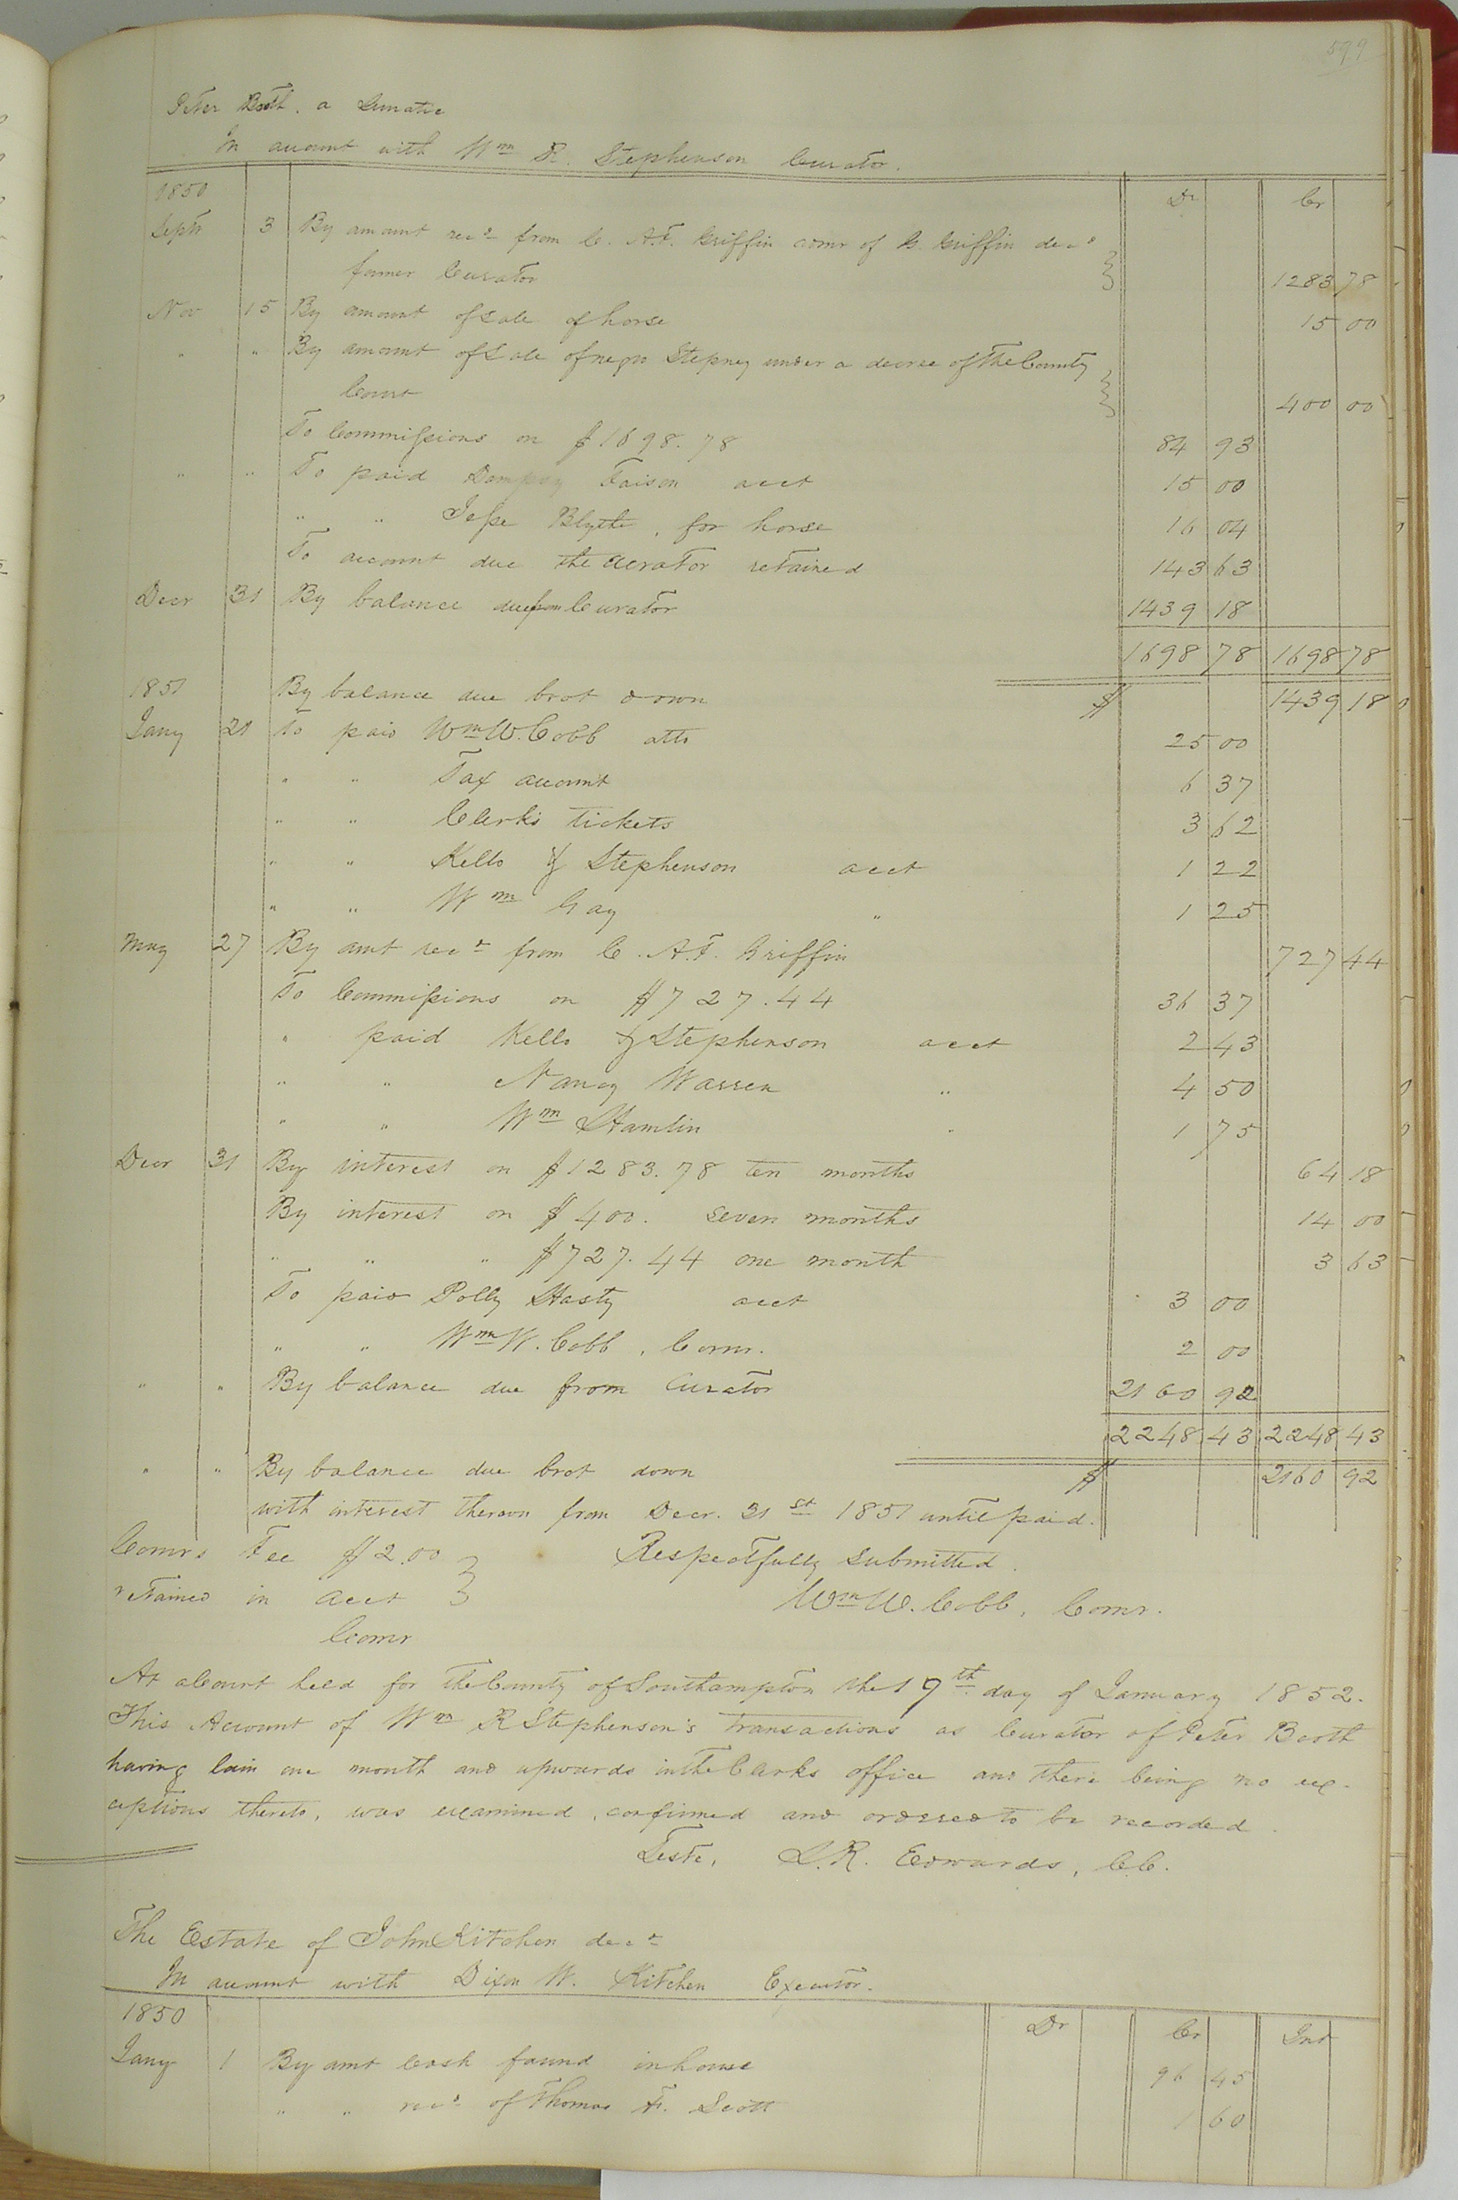 599
Peter Booth. a Lunatic
In account with Wm R. Stephenson Curator.
1850 Dr Cr
Septr 3 By amount recd from C. A.F. Griffin comr of G. Griffin decd
former Curator 1283 78
Nov 15 By amount of Sale of horse 15 00
" " By amount of Sale of negro Stepney under a decree of the County
Court 400 00
To Commissions on $1698.78 84 93
" " To paid Dempsey Faison acct 15 00
" " Jesse Blythe, for horse 16 04
To account due the Curator retained 143 63
Decr 31 By balance due from Curator 1439 18
1698 78 1698 78
1851 By balance due brot down $ 1439 18
Jany 21 To paid Wm W. Cobb atto 25 00
" " Tax account 6 37
" " Clerks tickets 3 62
" " Kello & Stephenson acct 1 22
" " Wm Gay " 1 25
May 27 By amt recd from C. A.F. Griffin 727 44
To Commissions on $727.44 36 37
" paid Kello & Stephenson acct 2 43
" " Nancy Warren " 4 50
" " Wm Hamlin " 1 75
Decr 31 By interest on $1283.78 ten months 64 18
By interest on $400. Seven months 14 00
" " " $727.44 one month 3 63
To paid Polly Hasty acct 3 00
" " Wm W. Cobb, Comr. 2 00
" " By balance due from Curator 2160 92
2248 43 2248 43
" " By balance due brot down $ 2160 92
with interest thereon from Decr. 31st 1851 until paid.
Comrs Fee $2.00 Respectfully Submitted.
retained in acct Wm W. Cobb, Comr.
Comr
At a Court held for the County of Southampton the 19th day of January 1852.
This Account of Wm R Stephenson's transactions as Curator of Peter Booth
having lain one month and upwards in the Clerks office and there being no ex-
ceptions thereto, was examined, confirmed and ordered to be recorded.
Teste, L.R. Edwards, C.C.
The Estate of John Kitchen decd
In account with Dixon W. Kitchen Executor.
1850 Dr Cr Int
Jany 1 By amt Cash found in house 96 45
" " recd of Thomas F. Scott 1 60